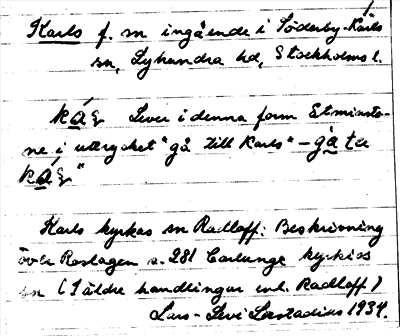 Karls f. sn ingående i Söderby-Karls
sn, Lyhundra hd, Stockholms l.
Lever i denna form åtminsto-
ne i uttrycket "gå till Karls" -
Karls kyrkas sn Radloff: Beskrivning
över Roslagen s. 281 Carlunge kyrkies
sn (I äldre handlingar enl. Radloff)
Lars-Levi Læstadius 1934.